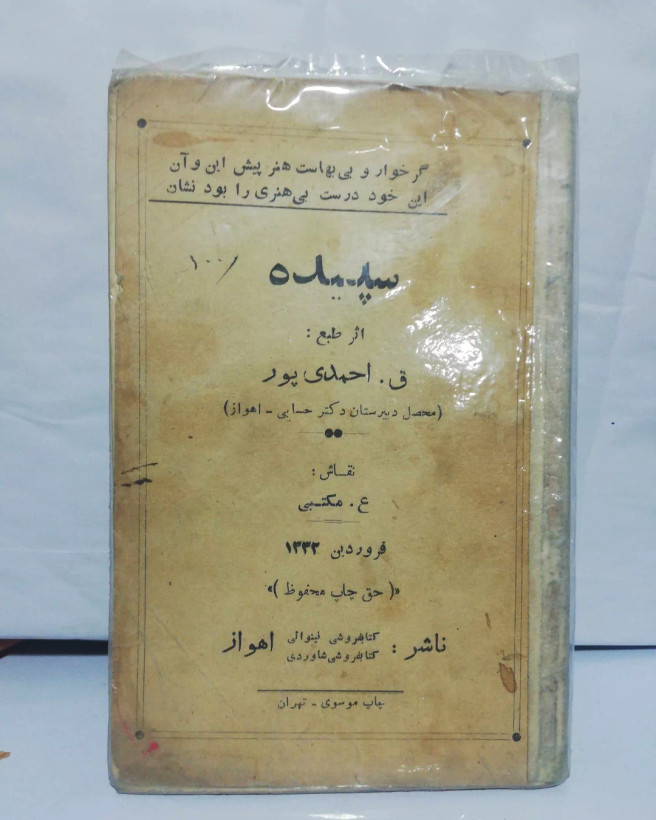 گر خوار و بی بهاست هنر پیش این و آن
این خود درست بی هنری را بود نشان
۱۰۰/
سپیده
اثر طبع :
ق . احمدی پور
(محصل دبیرستان دکتر حسابی - اهواز)
نقاش :
ع . مکتبی
فروردین ۱۳۳۲
«( حق چاپ محفوظ )»
ناشر : کتابفروشی نینوائی اهواز
کتابفروشی شاوردی
چاپ موسوی - تهران